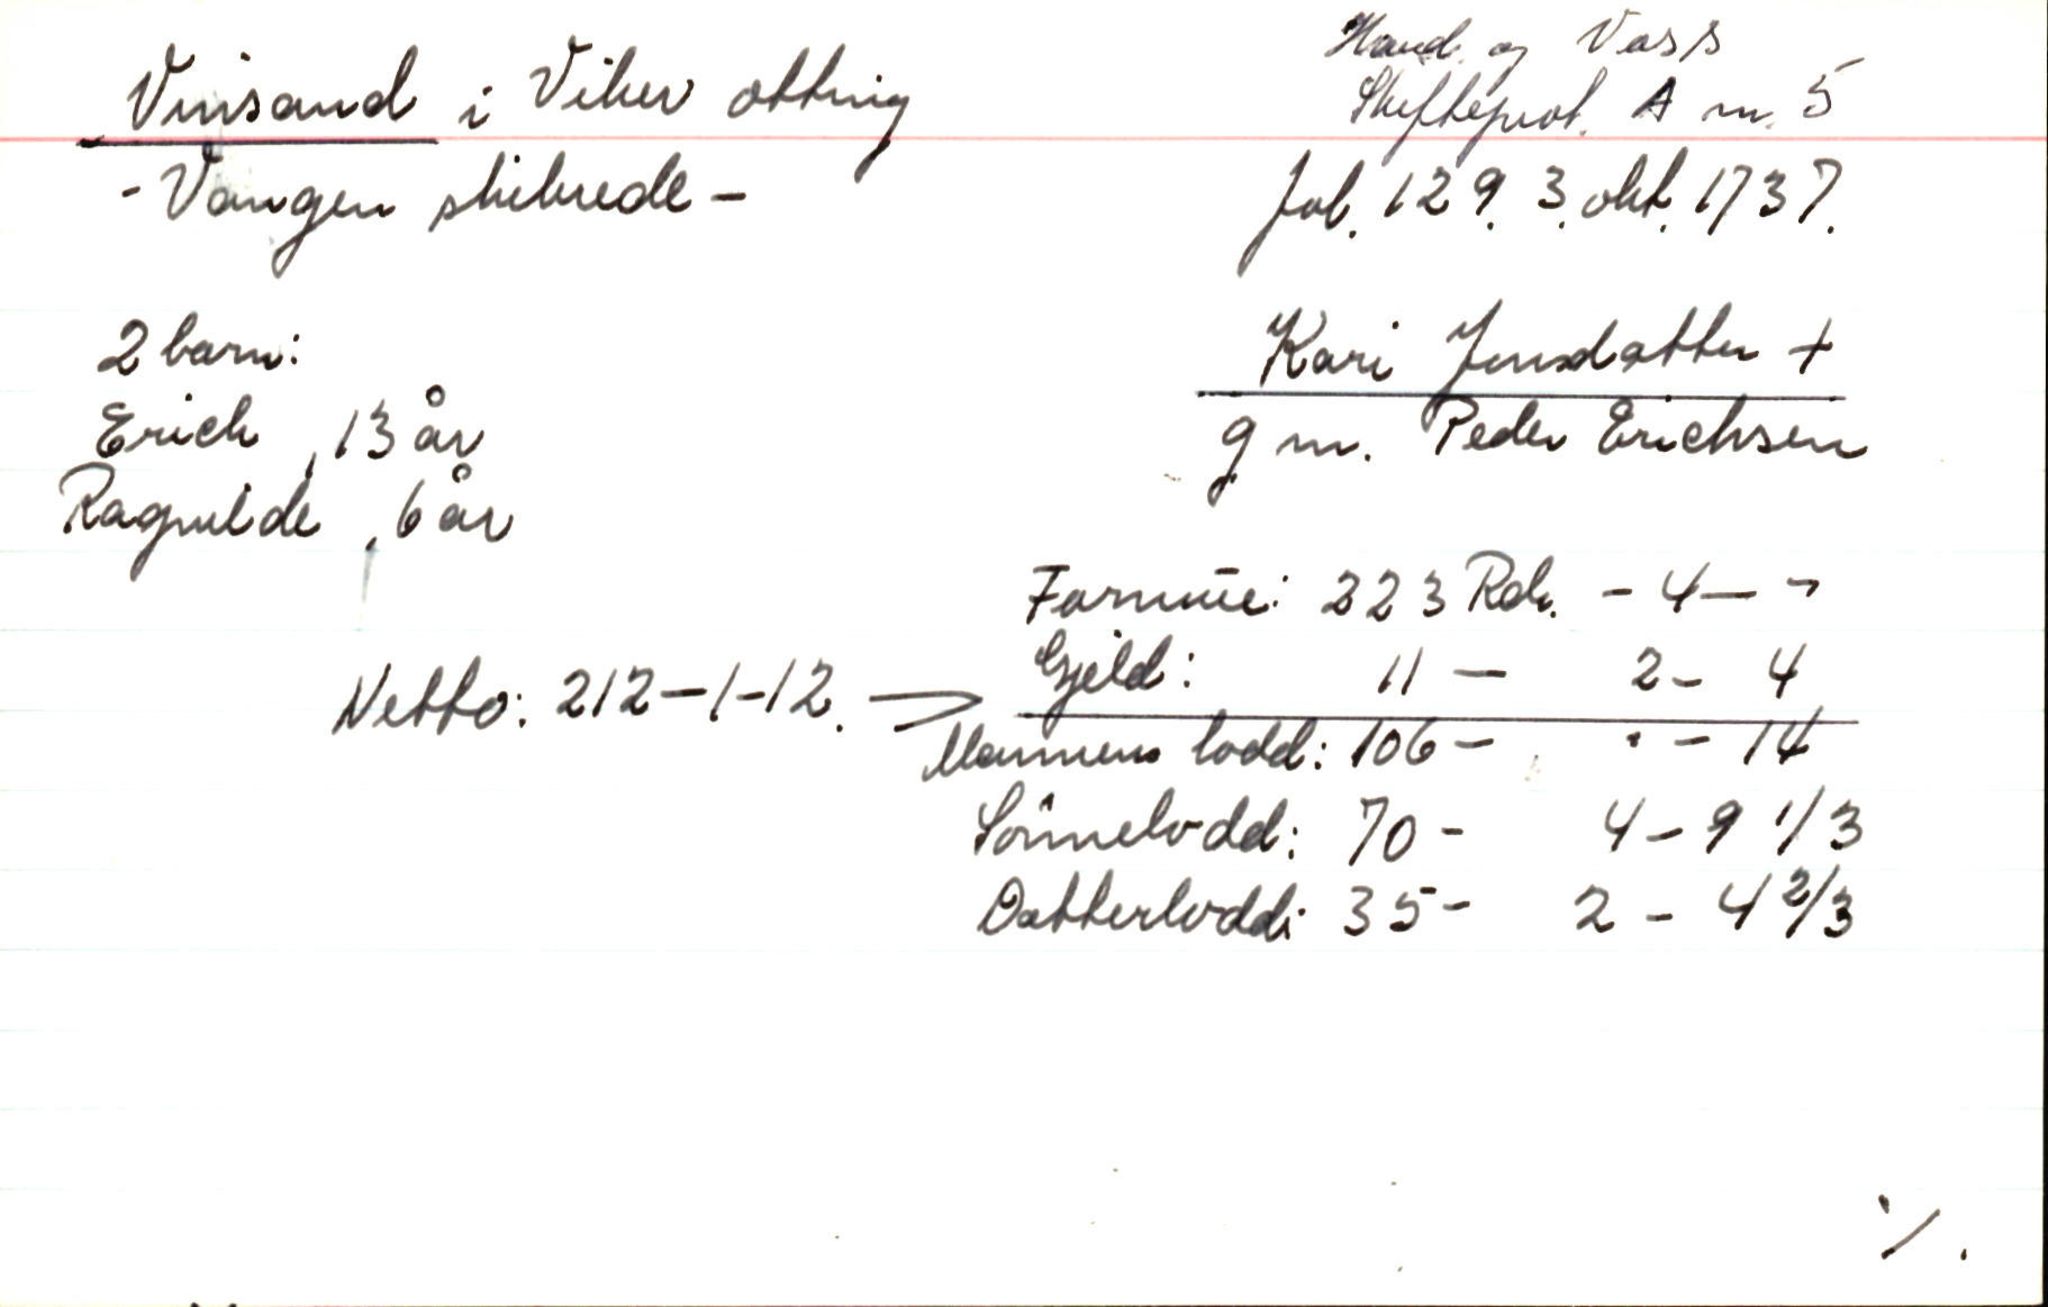 Vinsand i Viker otting
- Vangen skibrede -
Hard. og Voss
Skifteprot. A nr. 5
fol. 129. 3. okt. 1737.
2 barn:
Erich, 13 år
Ragnilde, 6 år
Kari Jonsdatter +
g m. Peder Erichsen
Formue: 223 Rdr. - 4 - -
Gjeld: 11 - 2 - 4
Netto: 212 - 1 - 12.
Mannens lodd: 106 - . - 14
Sönnelodd: 70 - 4 - 9 1/3
Datterlodd: 35 - 2 - 4 2/3
·/.